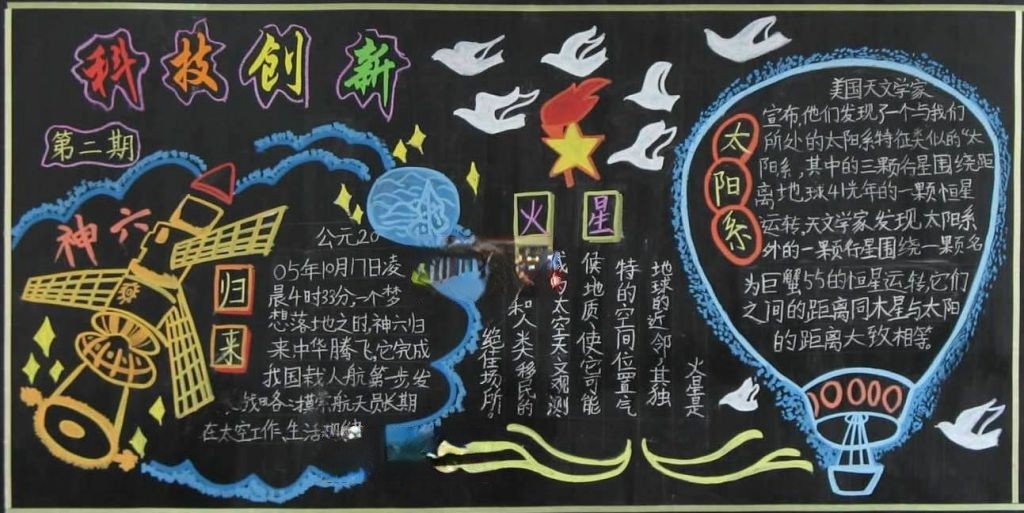 科技创新
第二期
神六
归来
公元20
05年10月17日凌
晨4时33分,一个梦
想落地之时,神六归
来中华腾飞,它完成
我国载人航第一步发
航天员长期
在太空工作、生活
火星
火星是
地球的近邻,其独
特的空间位置气
候地质,使它可能
太空天文观测
和人类移民的
绝佳场所!
太阳系
美国天文学家
宣布,他们发现了一个与我们
所处的太阳系特征类似的“太
阳系,其中的三颗行星围绕距
离地球41光年的一颗恒星
运转,天文学家发现,太阳系
外的一颗行星围绕一颗名
为巨蟹55的恒星运转,它们
之间的距离同木星与太阳
的距离大致相等